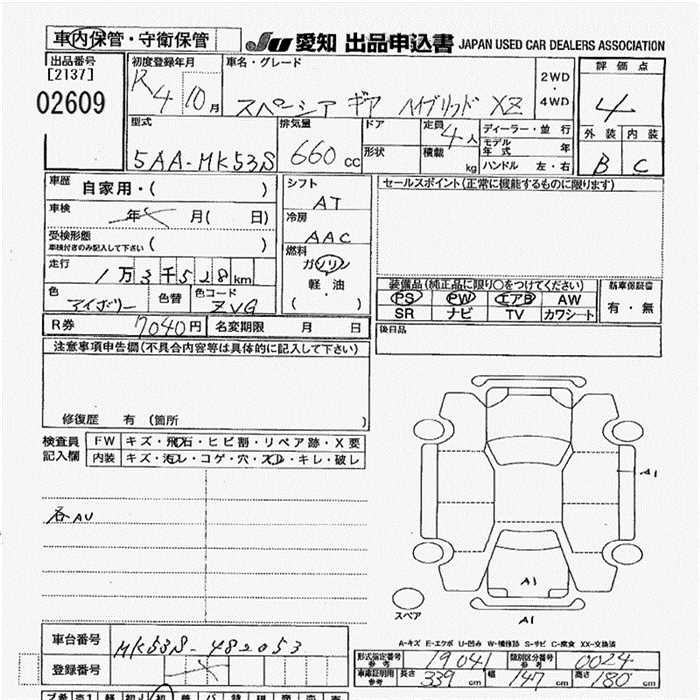 車内保管・守衛保管
JU 愛知 出品申込書 JAPAN USED CAR DEALERS ASSOCIATION
出品番号
[2137]
02609
初度登録年月
R4 10月
車名・グレード
スペーシア ギア ハイブリッド XZ
2WD
・
4WD
評価点
4
外装 内装
B C
型式
5AA-MK53S
排気量
660 cc
ドア
形状
定員
4人
積載
kg
ディーラー・並行
モデル年式 年
ハンドル 左・右
車歴
自家用・( )
車検
年 月( 日)
受検形態
車検付きのみ記入して下さい ( )
走行
1万3千528km
色
アイボリー
色替
色コード
ZVG
シフト
AT
冷房
AAC
燃料
ガソリン
軽・油
( )
セールスポイント(正常に機能するものに限ります)
装備品(純正品に限り○をつけてください)
PS PW エアB AW
SR ナビ TV カワシート
新車保証書
有・無
R券 7040円 名変期限 月 日
後日品
注意事項申告欄(不具合内容等は具体的に記入して下さい)
修復歴 有 (箇所 )
検査員
記入欄
FW キズ・飛石・ヒビ割・リペア跡・X要
内装 キズ・汚レ・コゲ・穴・スレ・キレ・破レ
各AU
A1
A1
A1
スペア
A-キズ E-エクボ U-凹み W-補修跡 S-サビ C-腐食 XX-交換済
車台番号 MK53S-482053
登録番号
型式指定番号
参考
19041
類別区分番号
参考
0024
車庫証明用
参考
長さ 339 cm 幅 147 cm 高さ 180 cm